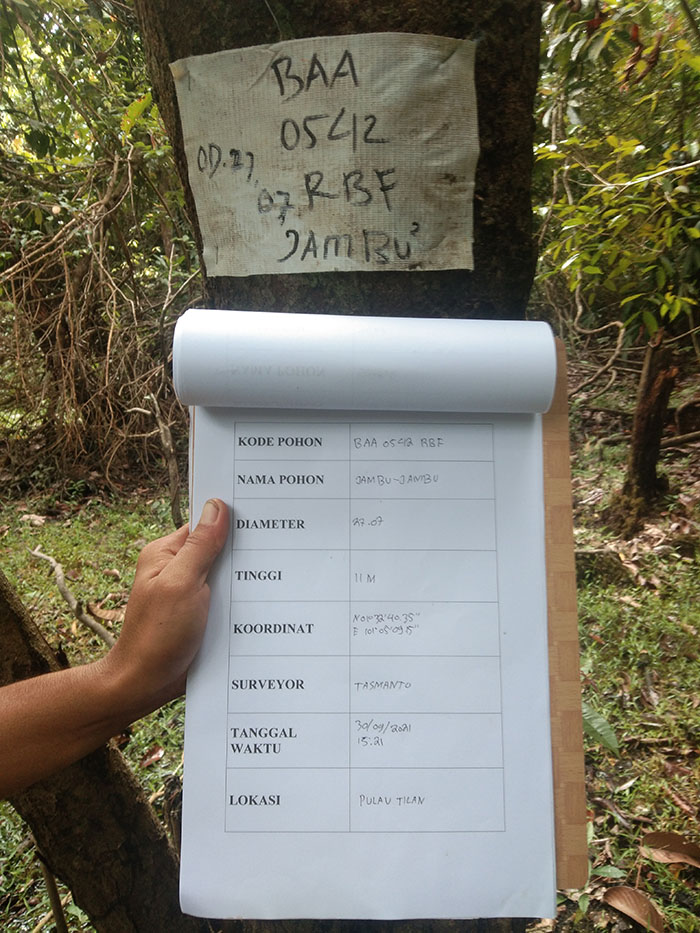 BAA
0542
OD.27,
07, RBF
"JAMBU"
KODE POHON BAA 0542 RBF
NAMA POHON JAMBU-JAMBU
DIAMETER 27.07
TINGGI 11 M
KOORDINAT N01°32'40.35"
E 101°05'09.5"
SURVEYOR TASMANTO
TANGGAL 30/09/2021
WAKTU 15:21
LOKASI PULAU TILAN